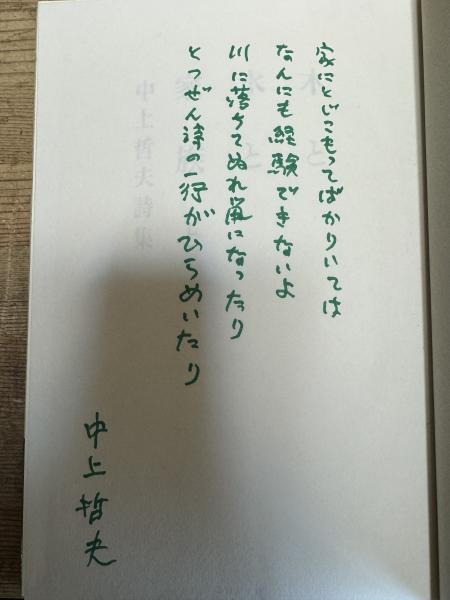 家にとじこもってばかりいては
なんにも経験できないよ
川に落ちてぬれ鼠になったり
とつぜん詩の一行がひらめいたり
中上哲夫
木と
水と
家族と
中上哲夫詩集